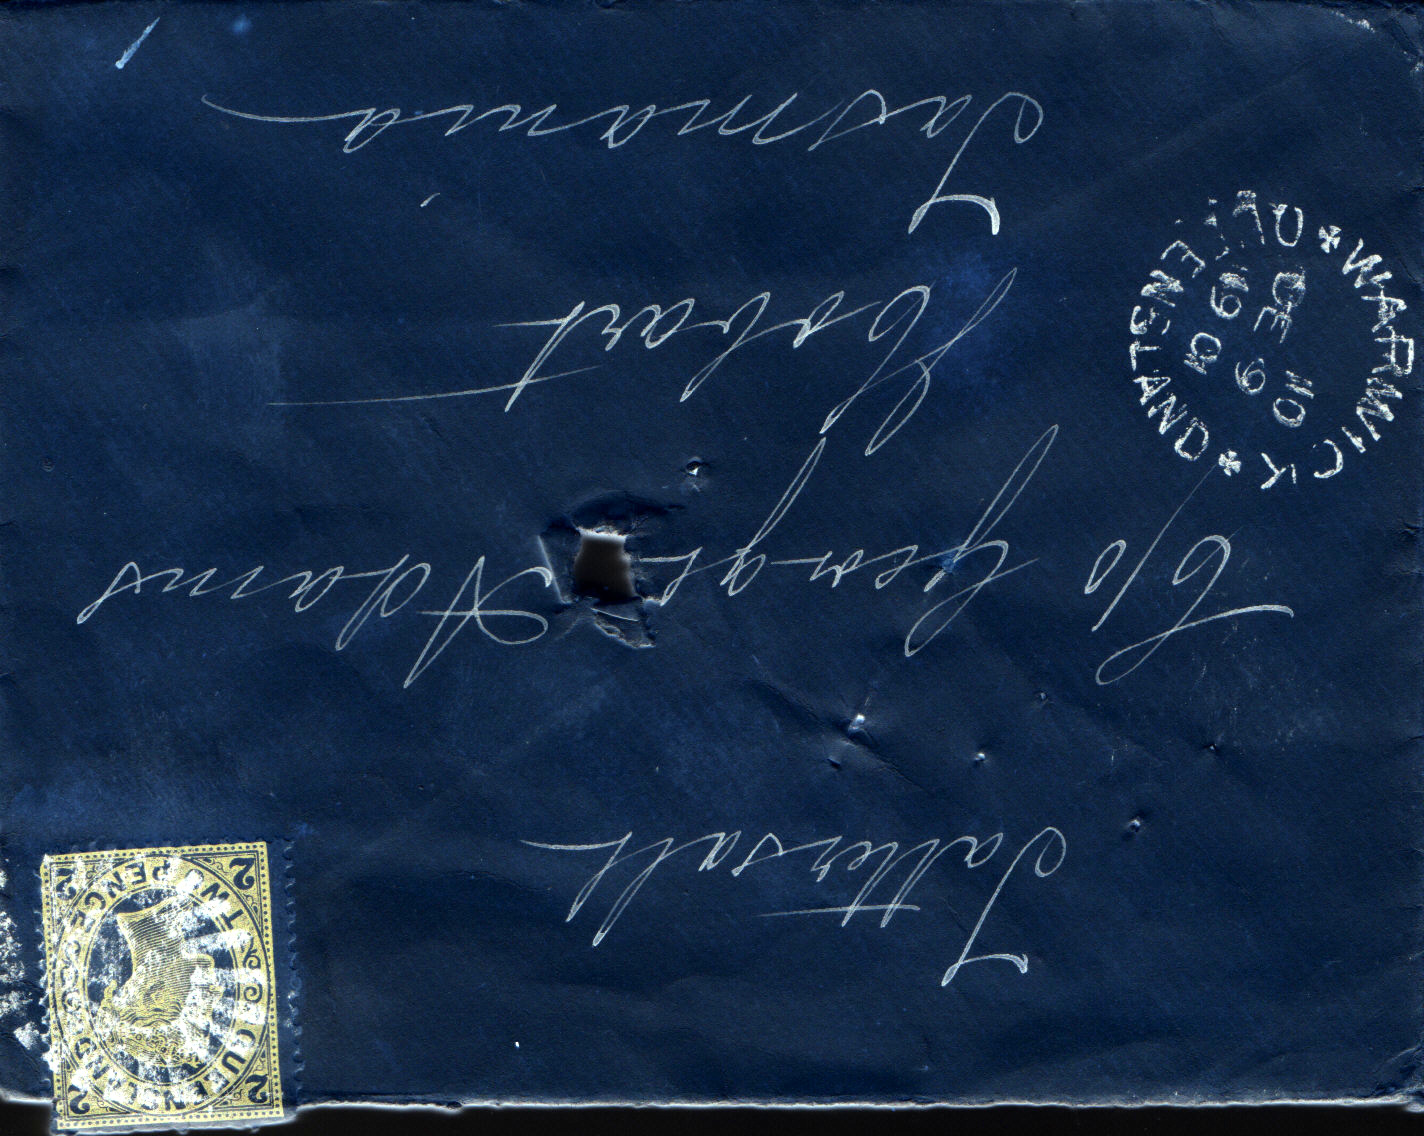 Tattersall
C/o George Adams
Hobart
Tasmania
WARWICK
QUEENSLAND
DE 9
QUEENSLAND
TWO PENCE
2 2
2 2